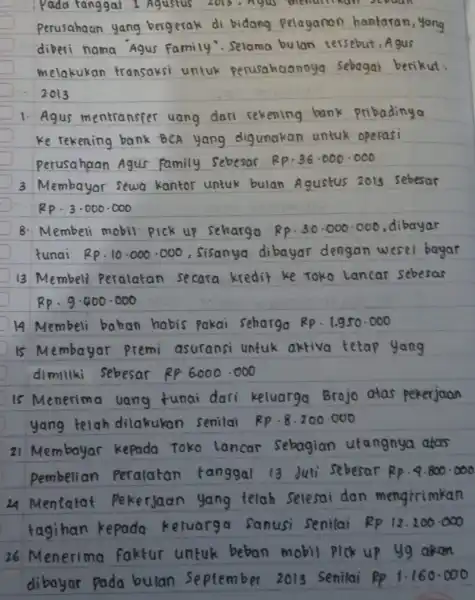 Pada tanggal 1 Agustus 2013, Agus
Perusahaan yang bergerak di bidang Pelayanan hantaran, yang
diberi nama "Agus Family". Selama bulan tersebut, Agus
melakukan transaksi untuk perusahaannya sebagai berikut.
2013
1. Agus mentransfer uang dari rekening bank Pribadinya
ke rekening bank BCA yang digunakan untuk operasi
perusahaan Agus Family Sebesar RP. 36.000.000
3 Membayar sewa kantor untuk bulan Agustus 2013 sebesar
RP. 3.000.000
8. Membeli mobil Pick up seharga Rp. 30.000.000, dibayar
tunai Rp. 10.000.000, sisanya dibayar dengan wesel bayar
13 Membeli Peralatan secara kredit ke Toko Lancar sebesar
Rp. 9.400.000
14 Membeli bahan habis pakai seharga RP. 1.950.000
15 Membayar premi asuransi untuk aktiva tetap yang
dimiliki sebesar RP 6000.000
15 Menerima uang tunai dari keluarga Brojo atas pekerjaan
yang telah dilakukan senilai Rp. 8.200 000
21 Membayar kepada Toko Lancar sebagian utangnya atas
Pembelian Peralatan tanggal 13 Juli sebesar Rp. 4.800.000
24 Mencatat Pekerjaan yang telah selesai dan mengirimkan
tagihan kepada keluarga Sanusi Senilai RP 12.200.000
26 Menerima faktur untuk beban mobil Pick up yg akan
dibayar pada bulan September 2013 senilai Rp 1.160.000